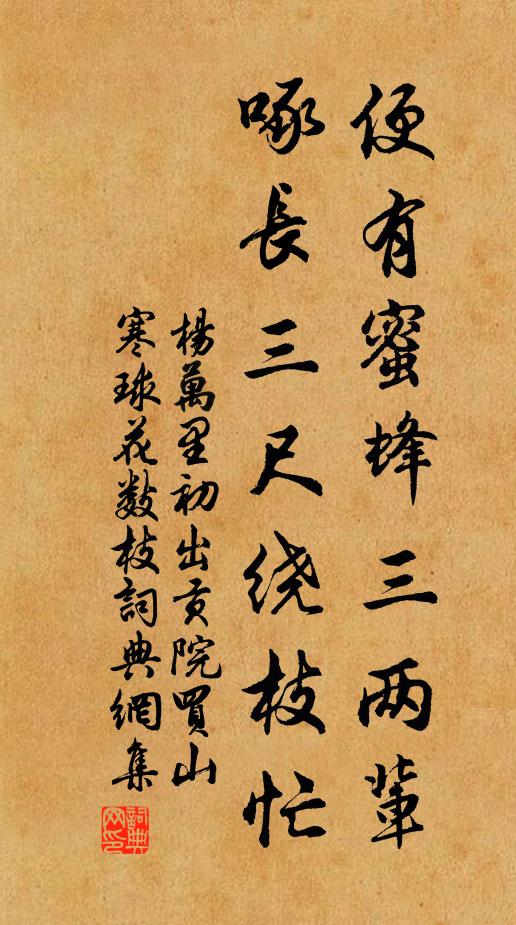 便有蜜蜂三两輩
啄長三尺绕枝忙
楊萬里初出貢院買山
寒球花數枝詞典網集
詞典
网印